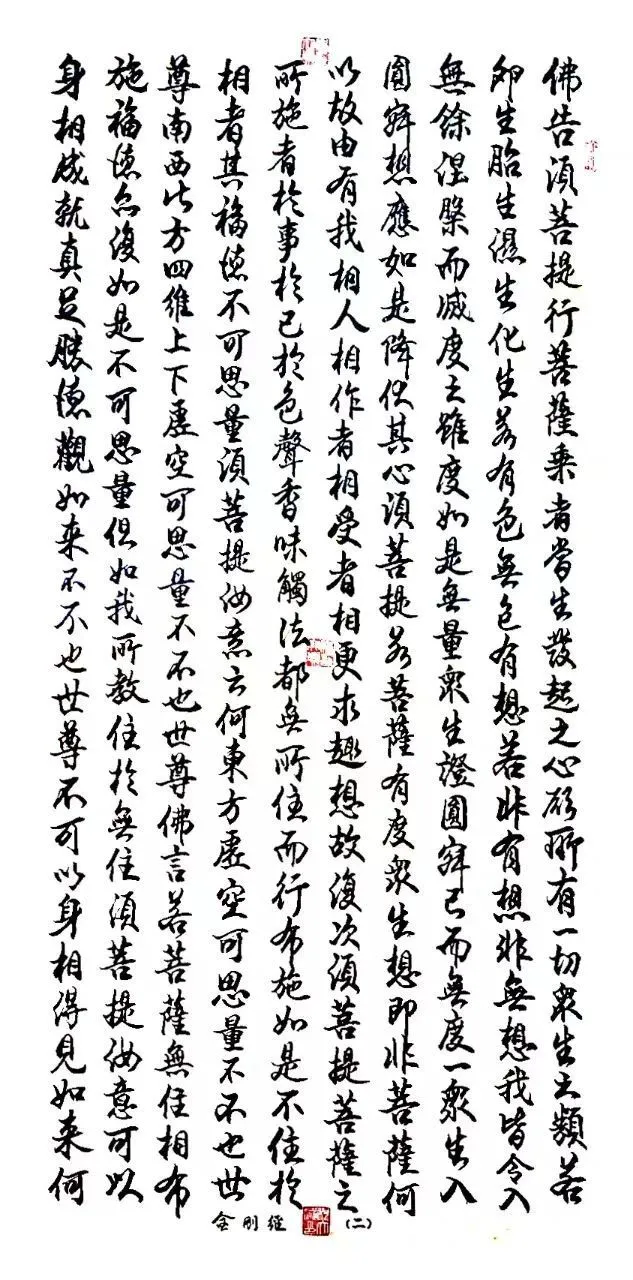 佛告須菩提行菩薩乘者當生發起之心所有一切眾生之類若
卵生胎生濕生化生若有色無色有想若非有想非無想我皆令入
無餘涅槃而滅度之雖度如是無量眾生證圓寂已而無度一眾生入
圓寂想應如是降伏其心須菩提若菩薩有度眾生想即非菩薩何
以故由有我相人相作者相受者相更求趣想故復次須菩提菩薩之
所施者於事於己於色聲香味觸法都無所住而行布施如是不住於
相者其福德不可思量須菩提汝意云何東方虛空可思量不不也世
尊南西北方四維上下虛空可思量不不也世尊佛言若菩薩無住相布
施福德亦復如是不可思量但如我所教住於無住須菩提汝意可以
身相成就真足勝德觀如來不不也世尊不可以身相得見如來何
金剛經 (二)